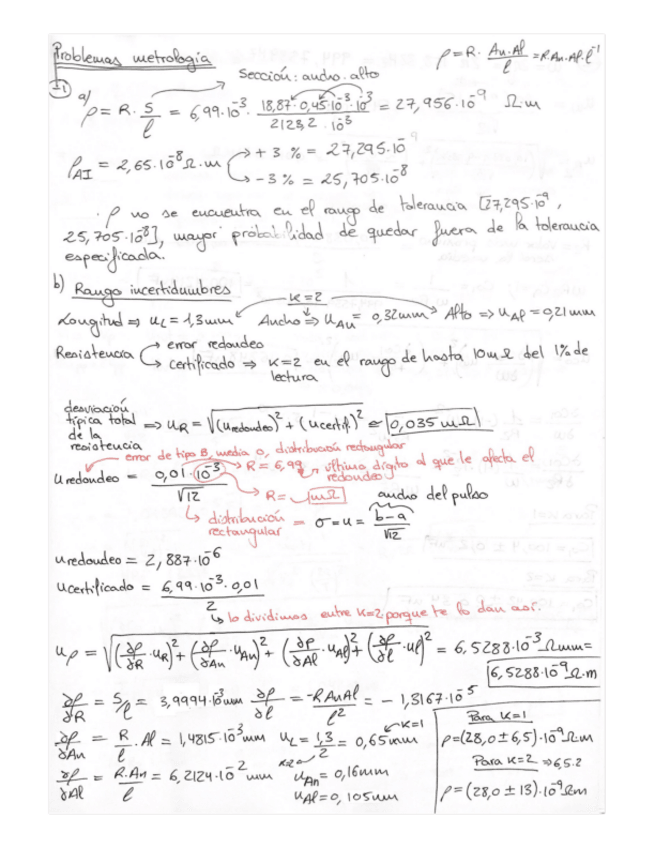 Problemas metrología
ρ = R · An·Al / l = R·An·Al·l⁻¹
Sección: ancho · alto
I1 a) ρ = R · S/l = 6,99·10⁻³ · 18,87·0,45·10⁻³·10⁻³ / 2123,2·10⁻³ = 27,956·10⁻⁹ Ω·m
ρAI = 2,65·10⁻⁸ Ω·m → +3% = 27,295·10⁻⁹
→ -3% = 25,705·10⁻⁸
· ρ no se encuentra en el rango de tolerancia [27,295·10⁻⁹,
25,705·10⁻⁸], mayor probabilidad de quedar fuera de la tolerancia
especificada.
b) Rango incertidumbres
K=2
Longitud ⇒ uL = 1,3mm Ancho ⇒ uAn = 0,32mm Alto ⇒ uAl = 0,21mm
Resistencia → error redondeo
→ certificado ⇒ K=2 en el rango de hasta 10mΩ del 1% de
lectura
desviación típica total de la resistencia ⇒ uR = √((uredondeo)² + (ucertif.)²) = 0,035 mΩ
error de tipo B, media 0, distribución rectangular
uredondeo = 0,01·10⁻³ / √12 → R = 6,99 → último dígito al que le afecta el redondeo
→ R = mΩ
ancho del pulso
→ distribución rectangular = σ = u = b-a / √12
uredondeo = 2,887·10⁻⁶
ucertificado = 6,99·10⁻³·0,01 / 2
→ lo dividimos entre K=2 porque te lo dan así.
uρ = √((∂ρ/∂R · uR)² + (∂ρ/∂An · uAn)² + (∂ρ/∂Al · uAl)² + (∂ρ/∂l · ul)²) = 6,5288·10⁻³ Ωmm =
6,5288·10⁻⁹ Ω·m
∂ρ/∂R = S/l = 3,9994·10⁻³ mm ∂ρ/∂l = -RAnAl / l² = -1,3167·10⁻⁵
∂ρ/∂An = R/l · Al = 1,4815·10⁻³ mm uL = 1,3/2 = 0,65mm ← K=1
K=2
∂ρ/∂Al = R·An / l = 6,2124·10⁻² mm uAn = 0,16mm
uAl = 0,105mm
Para K=1
ρ = (28,0 ± 6,5)·10⁻⁹ Ω·m
Para K=2 ⇒ 6,5·2
ρ = (28,0 ± 13)·10⁻⁹ Ωm